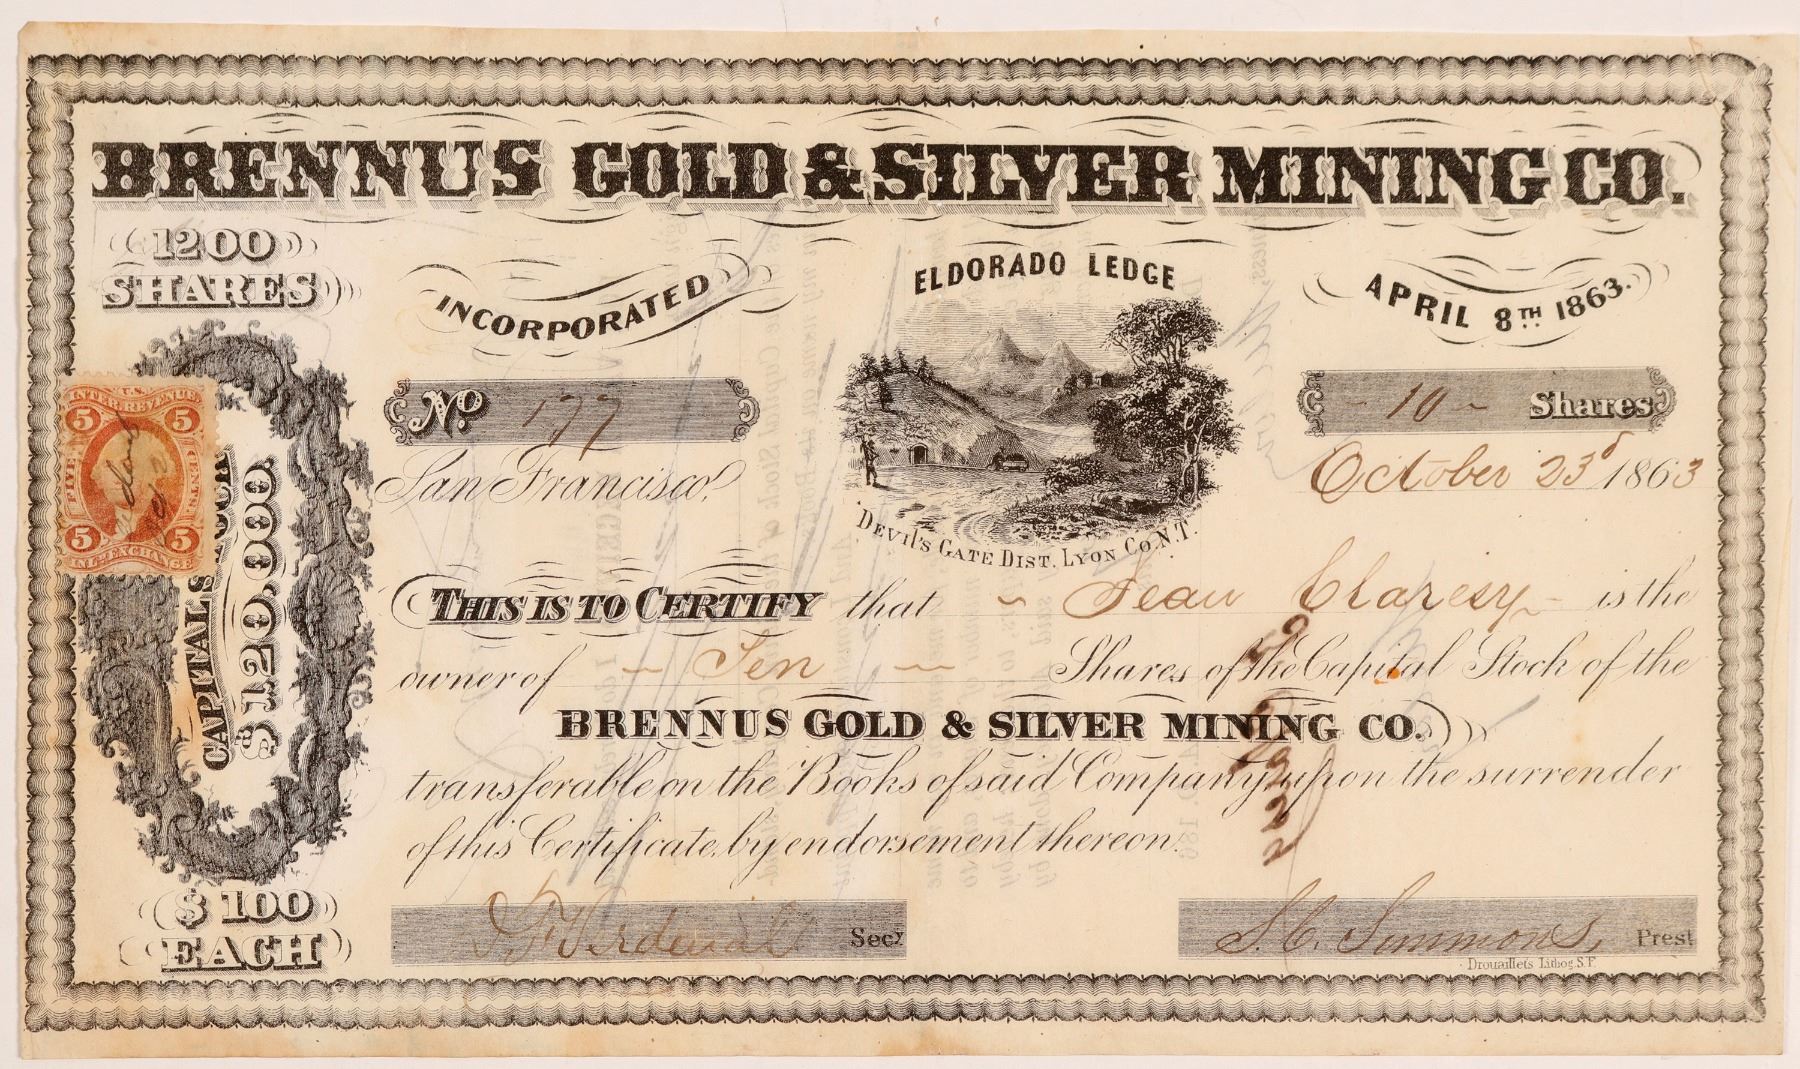 BRENNUS GOLD & SILVER MINING CO.
1200
SHARES
INCORPORATED
ELDORADO LEDGE
APRIL 8TH 1863.
No 177
10 Shares
San Francisco,
October 23d 1863
DEVIL'S GATE DIST. LYON CO. N.T.
U.S. INTER. REVENUE
5 5
FIVE CENTS
5 5
INL. EXCHANGE
CAPITAL STOCK
$120,000
THIS IS TO CERTIFY that Jean Claresy is the
owner of Ten Shares of the Capital Stock of the
BRENNUS GOLD & SILVER MINING CO.
transferable on the Books of said Company, upon the surrender
of this Certificate, by endorsement thereon.
$100
EACH
Secy
S.C. Simmons, Prest
Drouaillets Lithog. S.F.